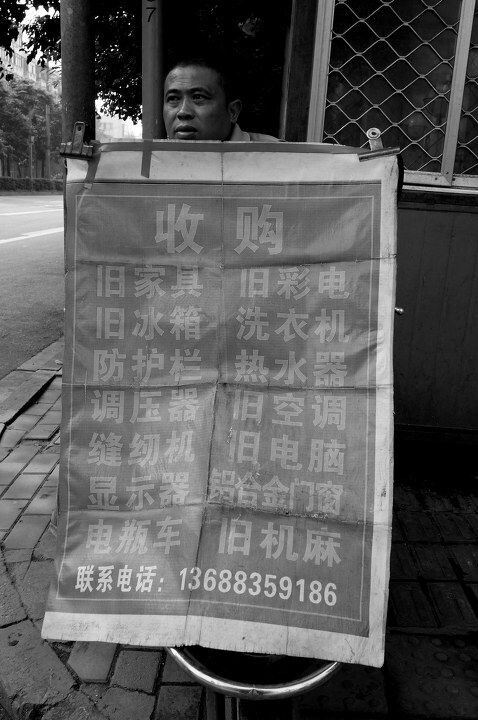 7
收购
旧家具 旧彩电
旧冰箱 洗衣机
防护栏 热水器
调压器 旧空调
缝纫机 旧电脑
显示器 铝合金门窗
电瓶车 旧机麻
联系电话：13688359186